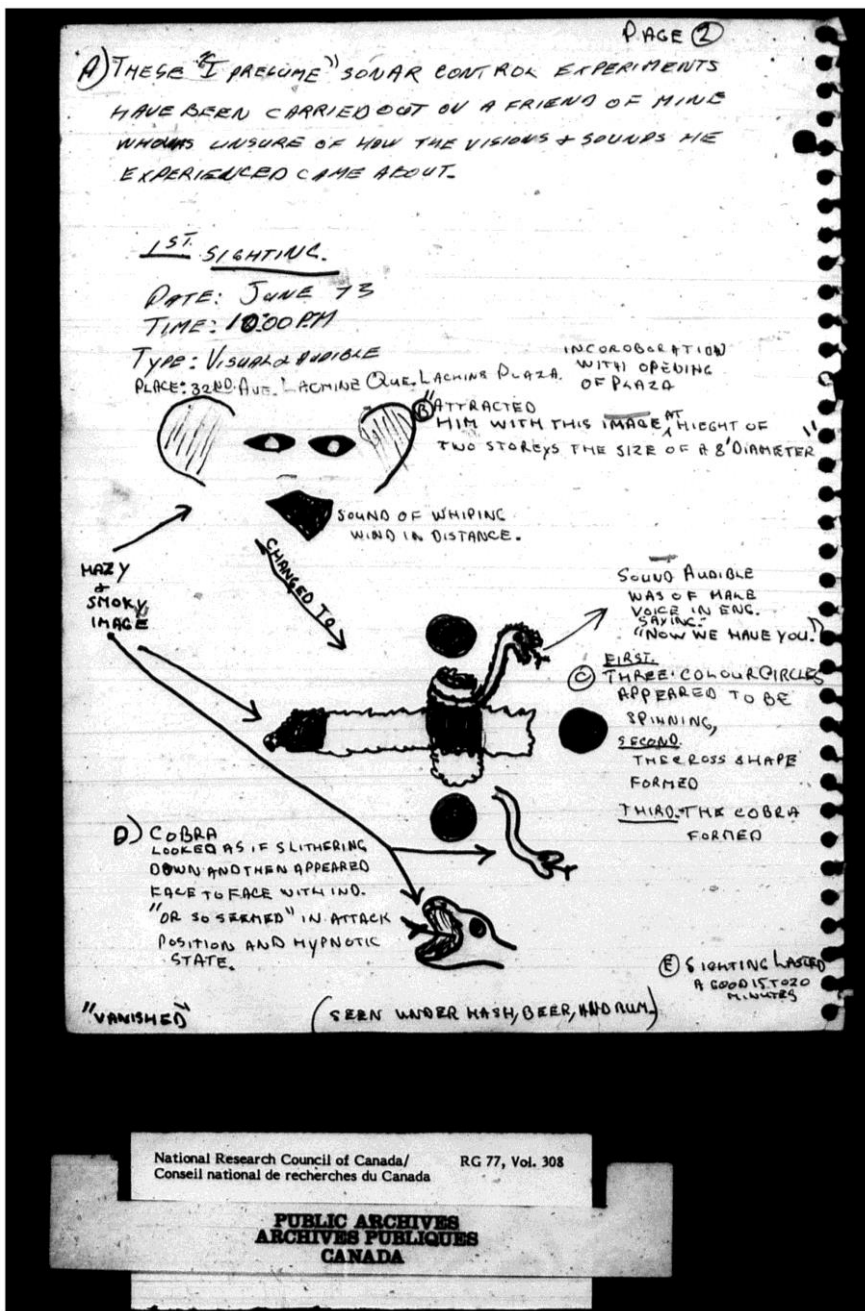 PAGE 2
A) THESE "I PRESUME" SONAR CONTROL EXPERIMENTS
HAVE BEEN CARRIED OUT ON A FRIEND OF MINE
WHO WAS UNSURE OF HOW THE VISIONS + SOUNDS HE
EXPERIENCED CAME ABOUT.
1ST. SIGHTING.
DATE: JUNE 73
TIME: 10:00 P.M
TYPE: VISUAL & AUDIBLE
PLACE: 32ND. AVE. LACHINE QUE. LACHINE PLAZA.
INCOROBORATION
WITH OPENING
OF PLAZA
B "ATTRACTED
HIM WITH THIS IMAGE AT HIEGHT OF
TWO STOREYS THE SIZE OF A 8' DIAMETER"
SOUND OF WHIPING
WIND IN DISTANCE.
CHANGED TO
HAZY
+
SMOKY
IMAGE
SOUND AUDIBLE
WAS OF MALE
VOICE IN ENG.
SAYING:
"NOW WE HAVE YOU."
FIRST.
C THREE COLOUR CIRCLES
APPEARED TO BE
SPINNING,
SECOND.
THE CROSS SHAPE
FORMED
THIRD. THE COBRA
FORMED
D) COBRA
LOOKED AS IF SLITHERING
DOWN AND THEN APPEARED
FACE TO FACE WITH IND.
"OR SO SEEMED" IN ATTACK
POSITION AND HYPNOTIC
STATE.
E SIGHTING LASTED
A GOOD 15 TO 20
MINUTES
"VANISHED"
(SEEN UNDER HASH, BEER, AND RUM.)
National Research Council of Canada/ RG 77, Vol. 308
Conseil national de recherches du Canada
PUBLIC ARCHIVES
ARCHIVES PUBLIQUES
CANADA